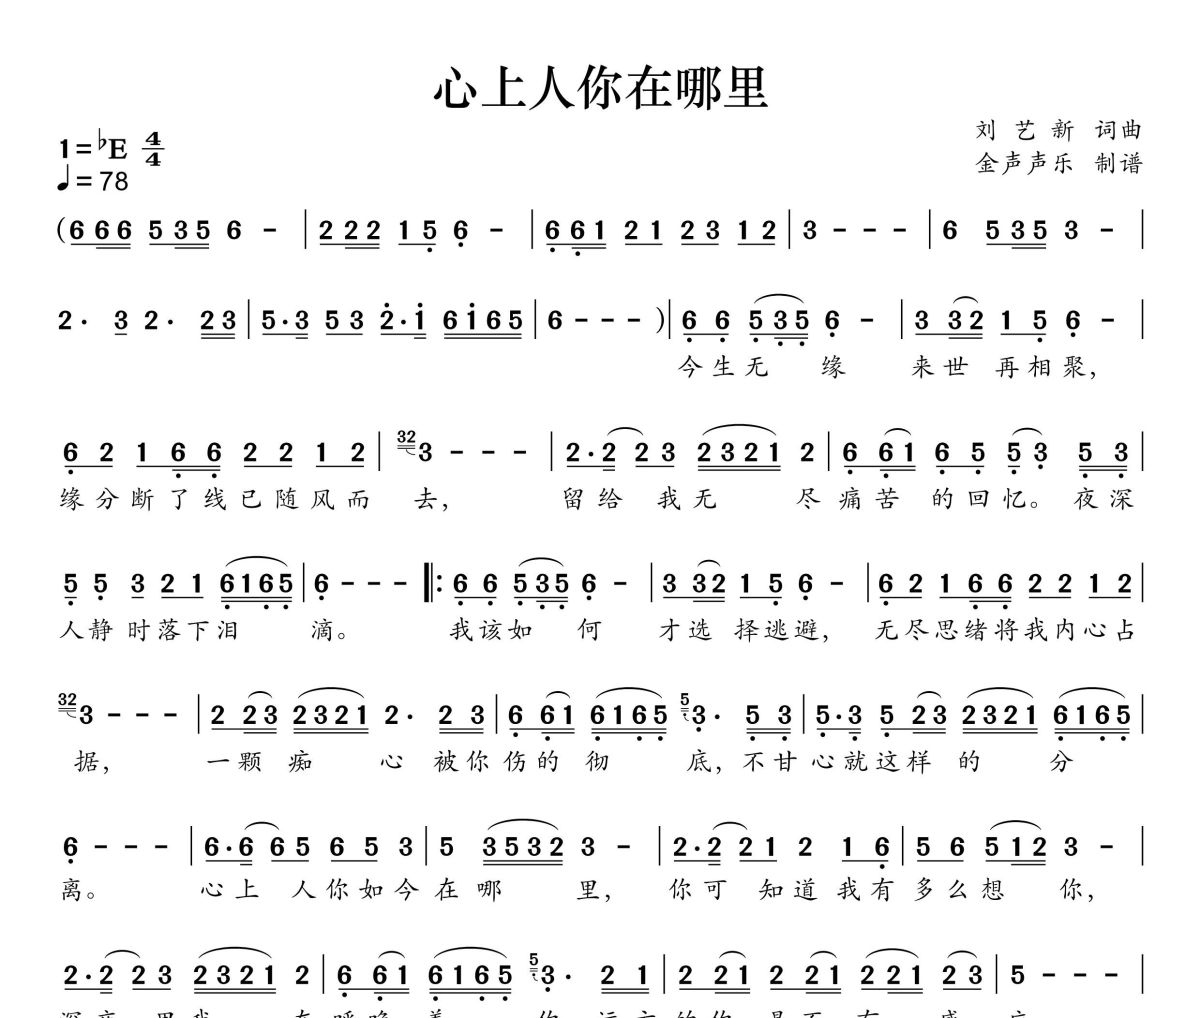 心上人你在哪里
刘艺新 词曲
1=♭E 4/4
金声声乐 制谱
♩=78
(6 6 6 5 3 5 6 - | 2 2 2 1 5 6 - | 6 6 1 2 1 2 3 1 2 | 3 - - - | 6 5 3 5 3 - |
2· 3 2· 2 3 | 5·3 5 3 2·1 6 1 6 5 | 6 - - - )| 6 6 5 3 5 6 - | 3 3 2 1 5 6 - |
今生无 缘 来世 再相聚,
6 2 1 6 6 2 2 1 2 | 32 3 - - - | 2·2 2 3 2 3 2 1 2 | 6 6 1 6 5 5 3 5 3 |
缘分断了线已随风而 去, 留给 我无 尽痛苦 的回忆。夜深
5 5 3 2 1 6 1 6 5 | 6 - - - ‖: 6 6 5 3 5 6 - | 3 3 2 1 5 6 - | 6 2 1 6 6 2 2 1 2 |
人静 时落下泪 滴。 我该如 何 才选 择逃避, 无尽思绪将我内心占
32 3 - - - | 2 2 3 2 3 2 1 2· 2 3 | 6 6 1 6 1 6 5 5 3· 5 3 | 5·3 5 2 3 2 3 2 1 6 1 6 5 |
据, 一颗 痴 心 被你伤的 彻 底,不甘心就这样 的 分
6 - - - | 6·6 6 5 6 5 3 | 5 3 5 3 2 3 - | 2·2 2 1 2 1 6 | 5 6 5 1 2 3 - |
离。 心上 人你如今在哪 里, 你可 知道我有多么想 你,
2·2 2 3 2 3 2 1 2 | 6 6 1 6 1 6 5 5 3· 2 1 | 2 2 1 2 2 1 2 2 1 2 3 | 5 - - - |